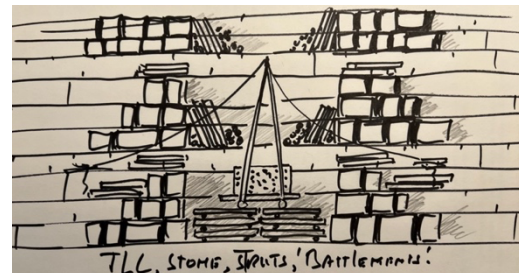 TLC, STONE, STRUTS, 'BATTLEMENTS!'